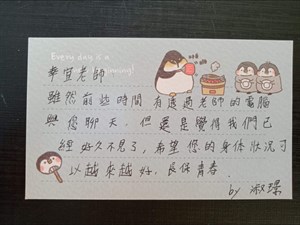 Every day is a
幸宜老師
雖然前些時間有透過老師的電腦
與您聊天，但還是覺得我們已
經好久不見了，希望您的身體狀況可
以越來越好，長保青春。
by 淑